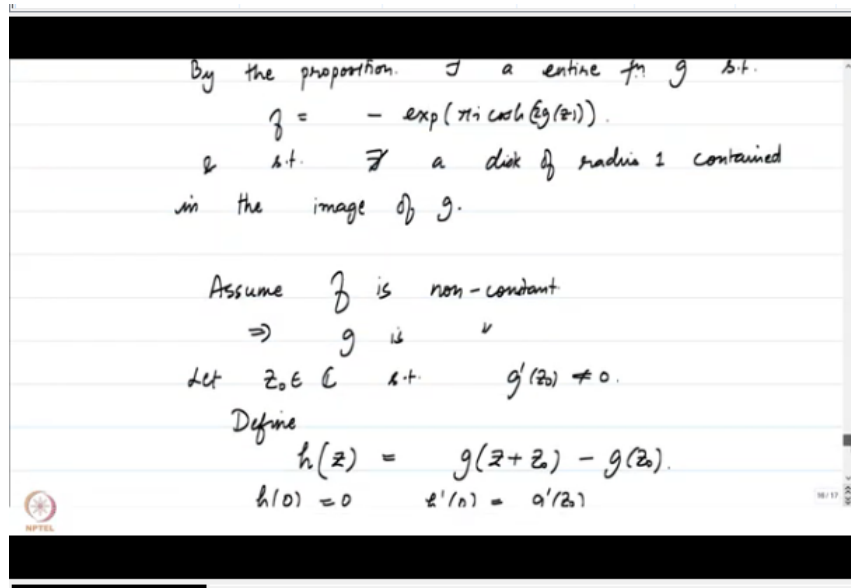 By the proposition. ∃ a entire fn g s.t.
f = - exp(πi cosh(2g(z))).
& s.t. ∄ a disk of radius 1 contained
in the image of g.
Assume f is non-constant
⇒ g is "
Let z₀ ∈ ℂ s.t. g'(z₀) ≠ 0.
Define
h(z) = g(z+z₀) - g(z₀).
h(0) = 0 h'(0) = g'(z₀)
16/17
NPTEL